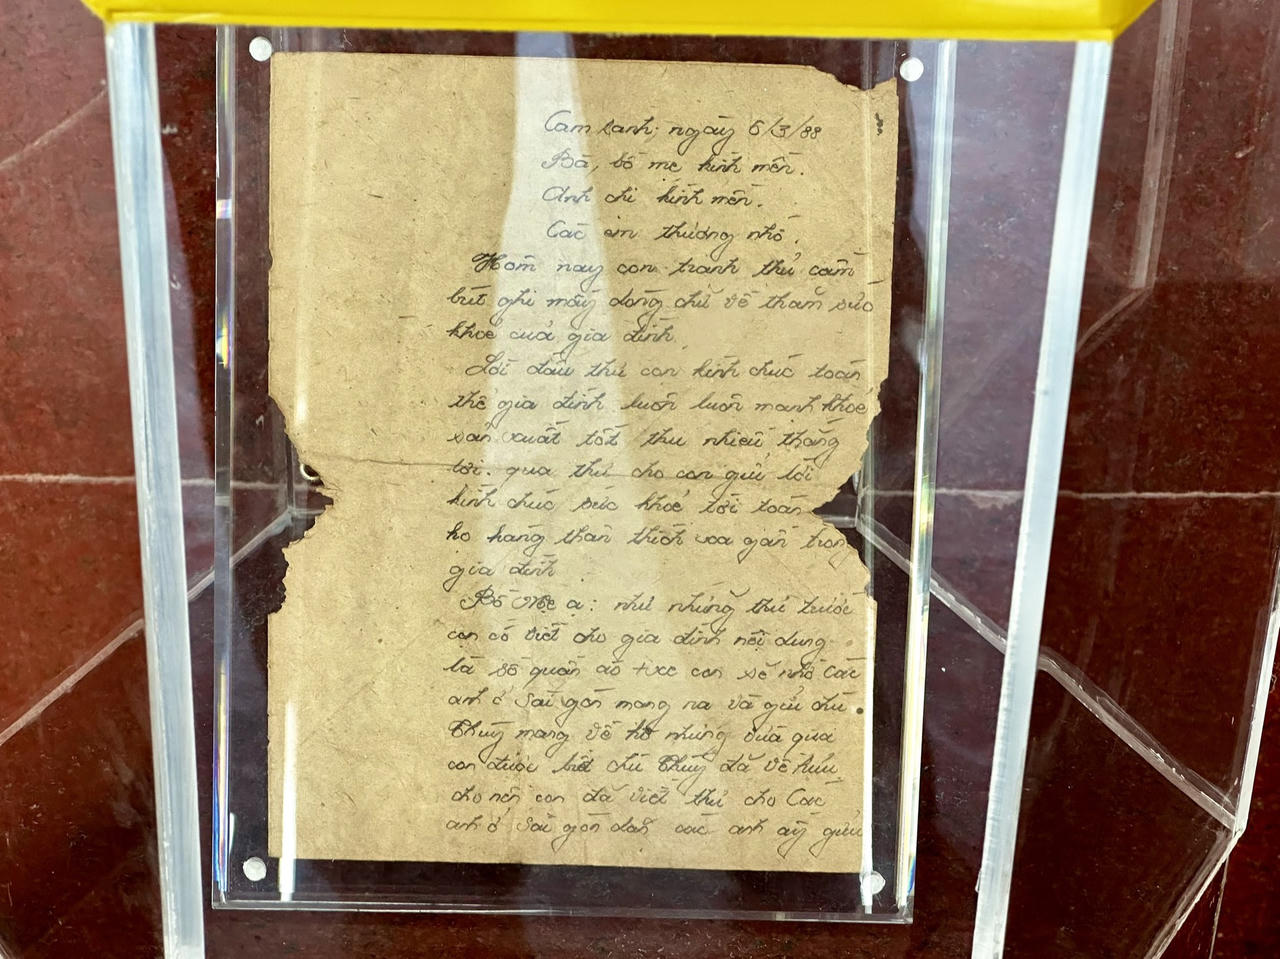 Cam Ranh; ngày 6/3/88
Bà, bố mẹ kính mến.
Anh chị kính mến.
Các em thương nhớ.
Hôm nay con tranh thủ cầm
bút ghi mấy dòng chữ về thăm sức
khoẻ của gia đình.
Lời đầu thư con kính chúc toàn
thể gia đình luôn luôn mạnh khoẻ
sản xuất tốt thu nhiều thắng
lợi. qua thư cho con gửi lời
kính chúc sức khoẻ tới toàn
họ hàng thân thích xa gần trong
gia đình
Bố Mẹ ạ: như những thư trước
con có viết cho gia đình nội dung
là số quần áo + xe con sẽ nhờ các
anh ở Sài gòn mang ra và gửi chú
Thuỷ mang về hộ nhưng vừa qua
con được biết chú Thuỷ đã về hưu
cho nên con đã viết thư cho Các
anh ở Sài gòn dặn các anh ấy gửi